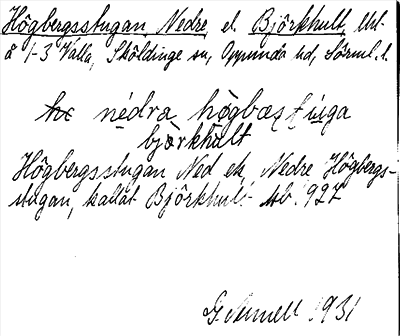 Högbergsstugan, Nedre, el. Björkhult, lht
å 1-3 Valla, Sköldinge sn, Oppunda hd, Söderml. l.
nèdra högbæstuga
bjørkhult
Högbergsstugan Ned ek, Nedre Högbergs-
stugan, kallat Björkhult Jb. 927
1931